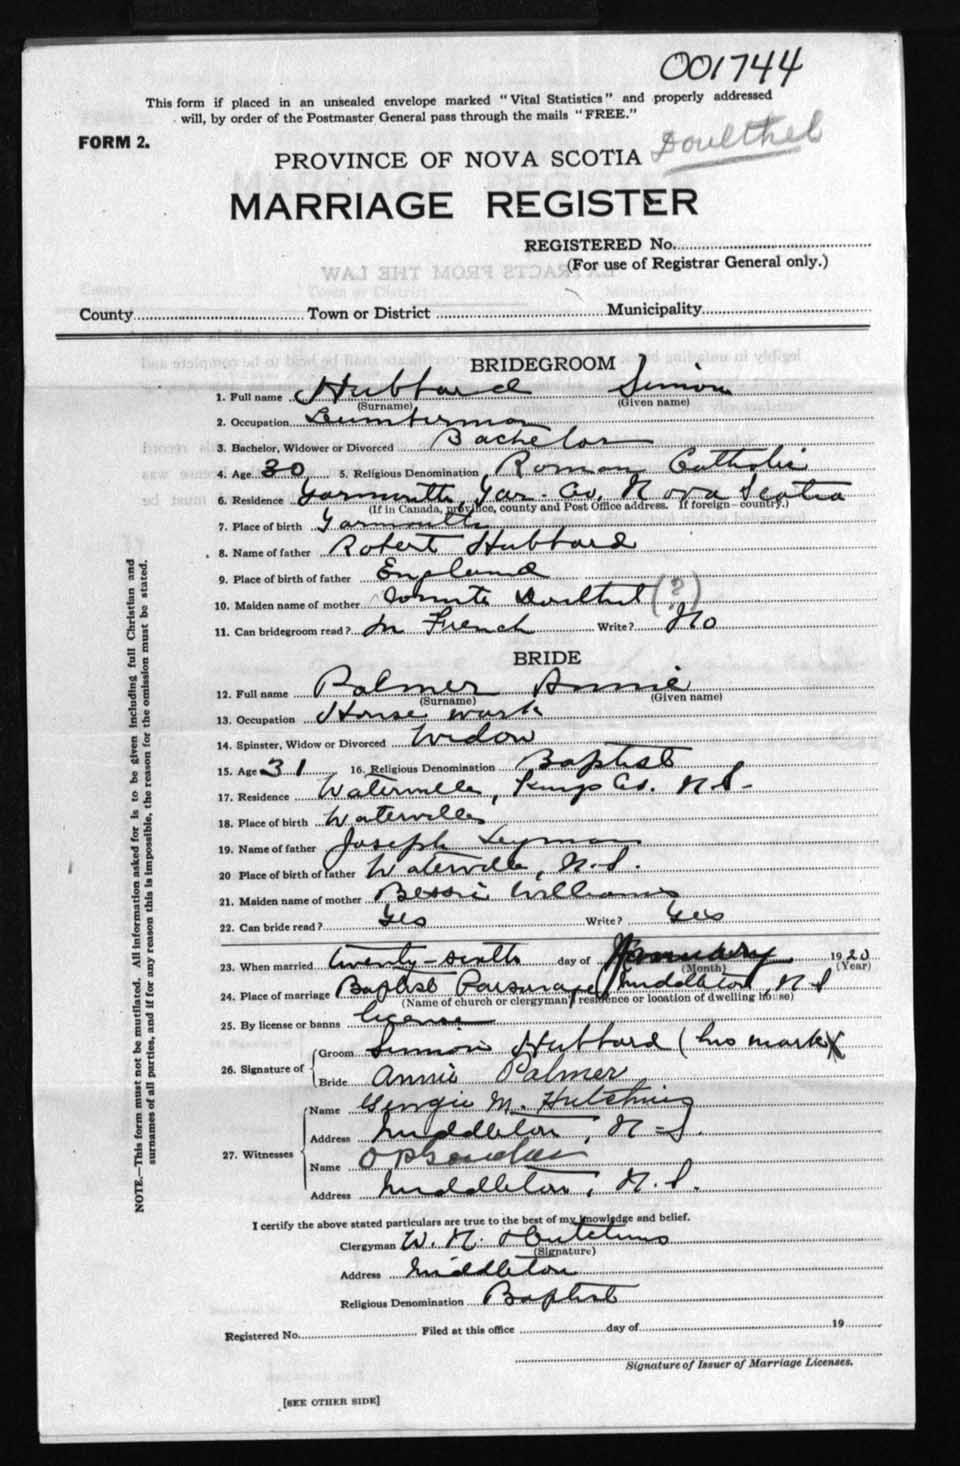 001744
This form if placed in an unsealed envelope marked "Vital Statistics" and properly addressed
will, by order of the Postmaster General pass through the mails "FREE."
FORM 2.
Doulthel
PROVINCE OF NOVA SCOTIA
MARRIAGE REGISTER
REGISTERED No.
(For use of Registrar General only.)
County Town or District Municipality
BRIDEGROOM
1. Full name Hubbard Simon
(Surname) (Given name)
2. Occupation Lumberman
3. Bachelor, Widower or Divorced Bachelor
4. Age 30 5. Religious Denomination Roman Catholic
6. Residence Yarmouth, Yar. Co. Nova Scotia
(If in Canada, province, county and Post Office address. If foreign—country.)
7. Place of birth Yarmouth
8. Name of father Robert Hubbard
9. Place of birth of father England
10. Maiden name of mother Doulthel (?)
11. Can bridegroom read? In French Write? No
BRIDE
12. Full name Palmer Annie
(Surname) (Given name)
13. Occupation House work
14. Spinster, Widow or Divorced Widow
15. Age 31 16. Religious Denomination Baptist
17. Residence Waterville, Kings Co. N.S.
18. Place of birth Waterville
19. Name of father Joseph Lyman
20 Place of birth of father Waterville, N.S.
21. Maiden name of mother Bessie Williams
22. Can bride read? Yes Write? Yes
23. When married twenty-sixth day of January 1920
(Month) (Year)
24. Place of marriage Baptist Parsonage, Middleton, N S
(Name of church or clergyman, residence or location of dwelling house)
25. By license or banns license
26. Signature of Groom Simon Hubbard (his mark X
Bride Annie Palmer
27. Witnesses Name Georgie M. Hutchins
Address Middleton, N-S.
Name O P
Address Middleton, N.S.
I certify the above stated particulars are true to the best of my knowledge and belief.
Clergyman W. N. Hutchins
(Signature)
Address Middleton
Religious Denomination Baptist
Registered No. Filed at this office day of 19
Signature of Issuer of Marriage Licenses.
[SEE OTHER SIDE]
NOTE.—This form must not be mutilated. All information asked for is to be given including full Christian and
surnames of all parties, and if for any reason this is impossible, the reason for the omission must be stated.